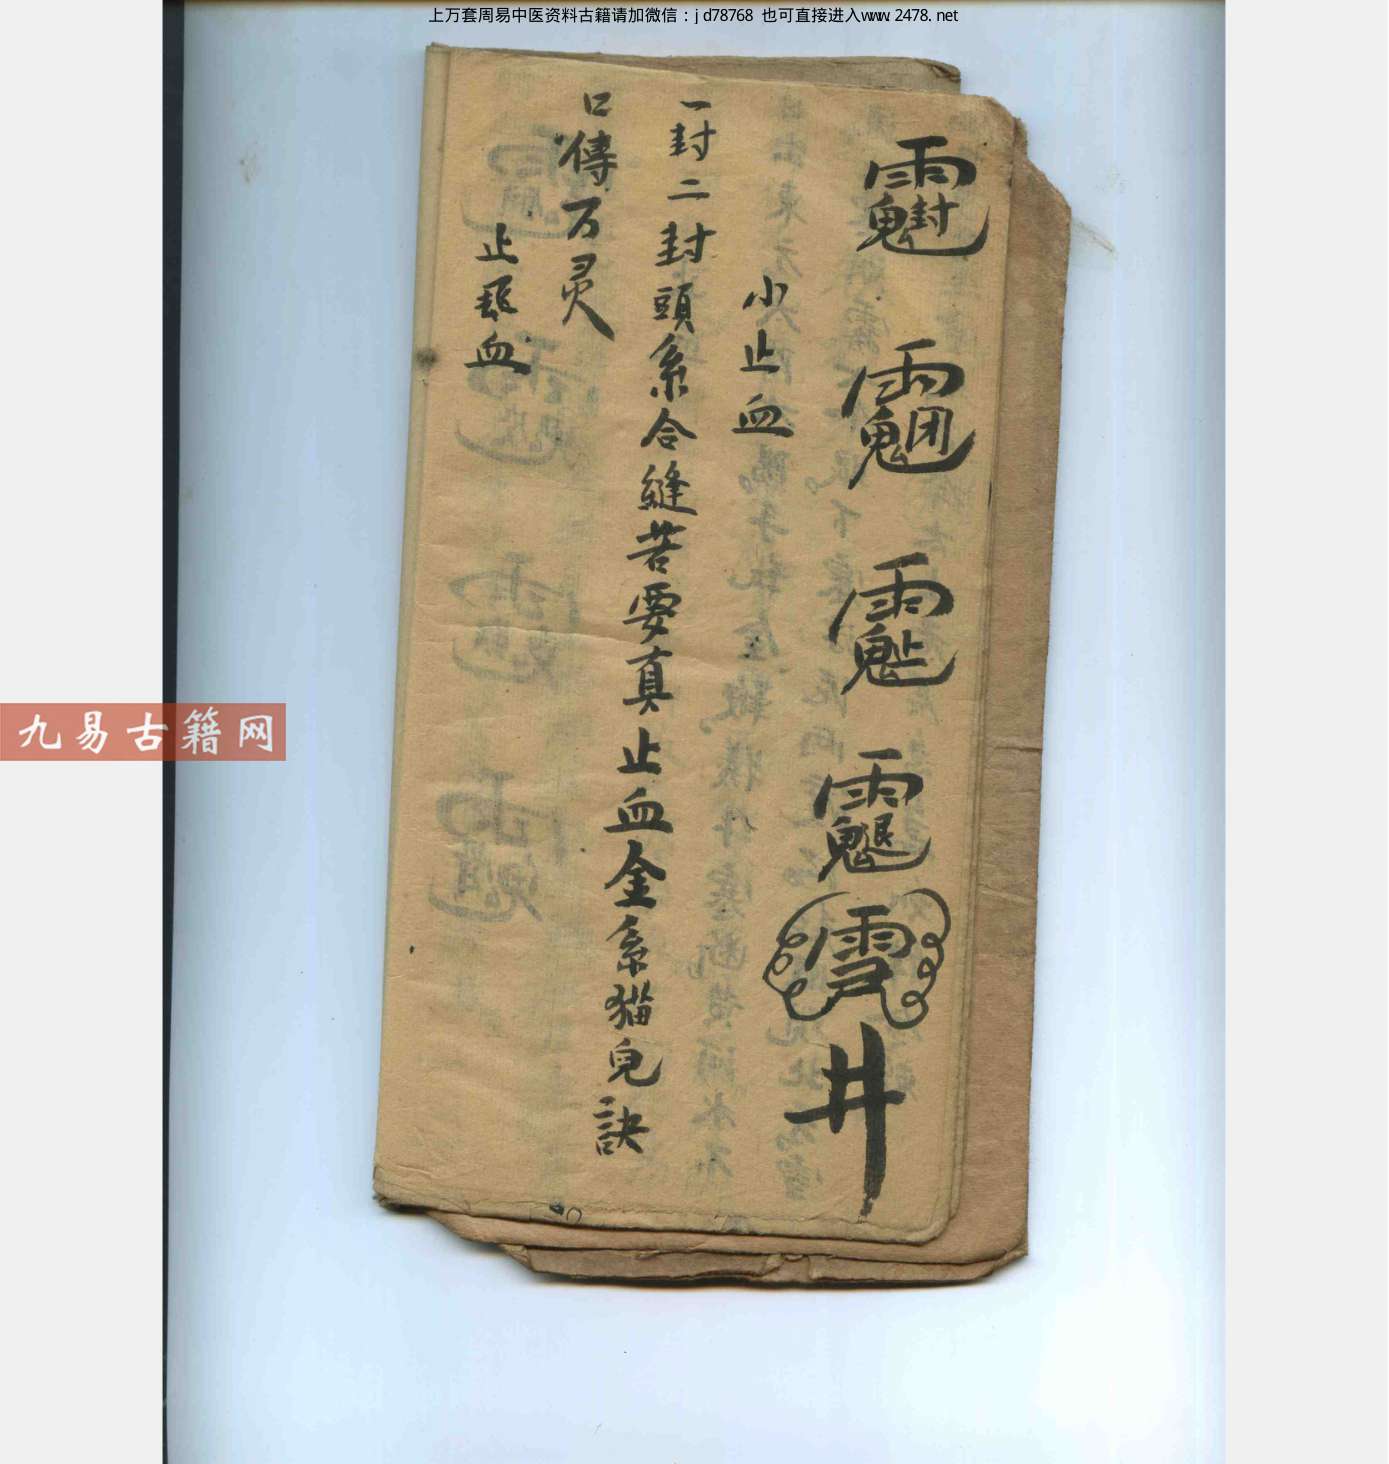 上万套周易中医资料古籍请加微信：jd78768 也可直接进入www.2478.net
井
小止血
一封二封頭系合縫若要真止血金系猫皃訣
口傳万灵
止血
九易古籍网